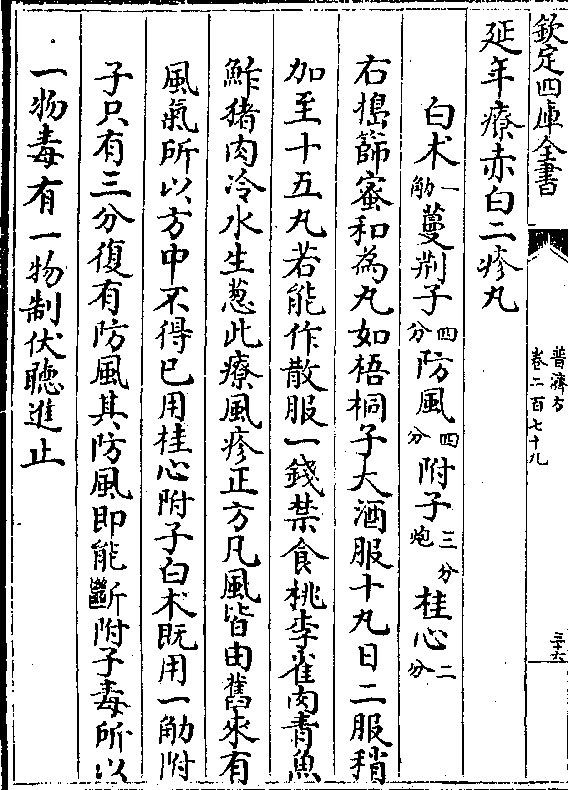 欽定四庫全書
普濟方
卷二百七十九
三十六
延年療赤白二疹丸
白术一觔蔓荆子四分防風四分附子三分炮桂心二分
右搗篩蜜和為丸如梧桐子大酒服十丸日二服稍
加至十五丸若能作散服一錢禁食桃李雀肉青魚
鮓猪肉冷水生葱此療風疹正方凡風皆由舊來有
風氣所以方中不得已用桂心附子白术既用一觔附
子只有三分復有防風其防風即能斷附子毒所以
一物毒有一物制伏聽進止